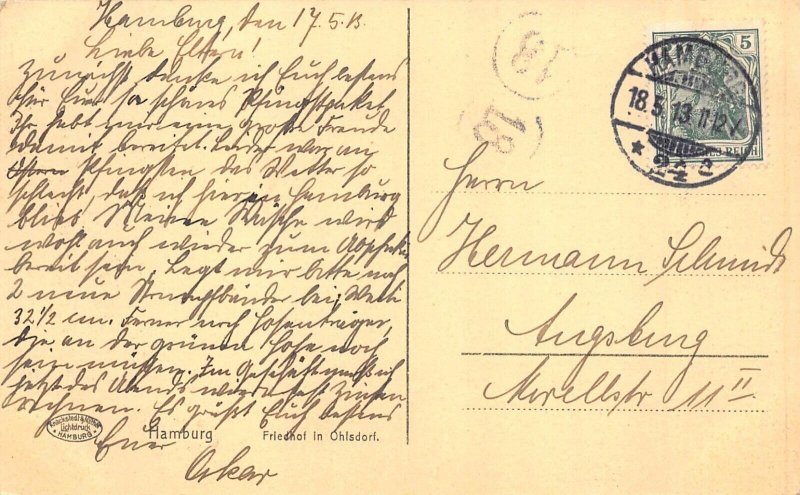 Hamburg, den 17.5.13.
Liebe Eltern!
Zunächst danke ich Euch bestens
für Euer so schönes Pfingstpaket.
Ihr habt mir eine große Freude
damit bereitet. Leider war an
Pfingsten das Wetter so
schlecht, daß ich hier in Hamburg
blieb. Meine Wäsche wird
wohl auch wieder zum
bereit sein. Legt mir bitte noch
2 neue bei, Weite
32 1/2 cm. Ferner noch Hosenträger,
die an der grünen Hose noch
sein müssen. Im Geschäft muß ich
jetzt des Abends wieder fest Zinsen
rechnen. Es grüßt Euch bestens
Euer
Oskar
Knackstedt & Näther
Lichtdruck
HAMBURG
Hamburg Friedhof in Ohlsdorf.
18
18
5
HAMBURG
18.5.13. 11-12 V
* 24 a
REICH
Herrn
Hermann Schmidt
Augsburg
Morellstr 11 II